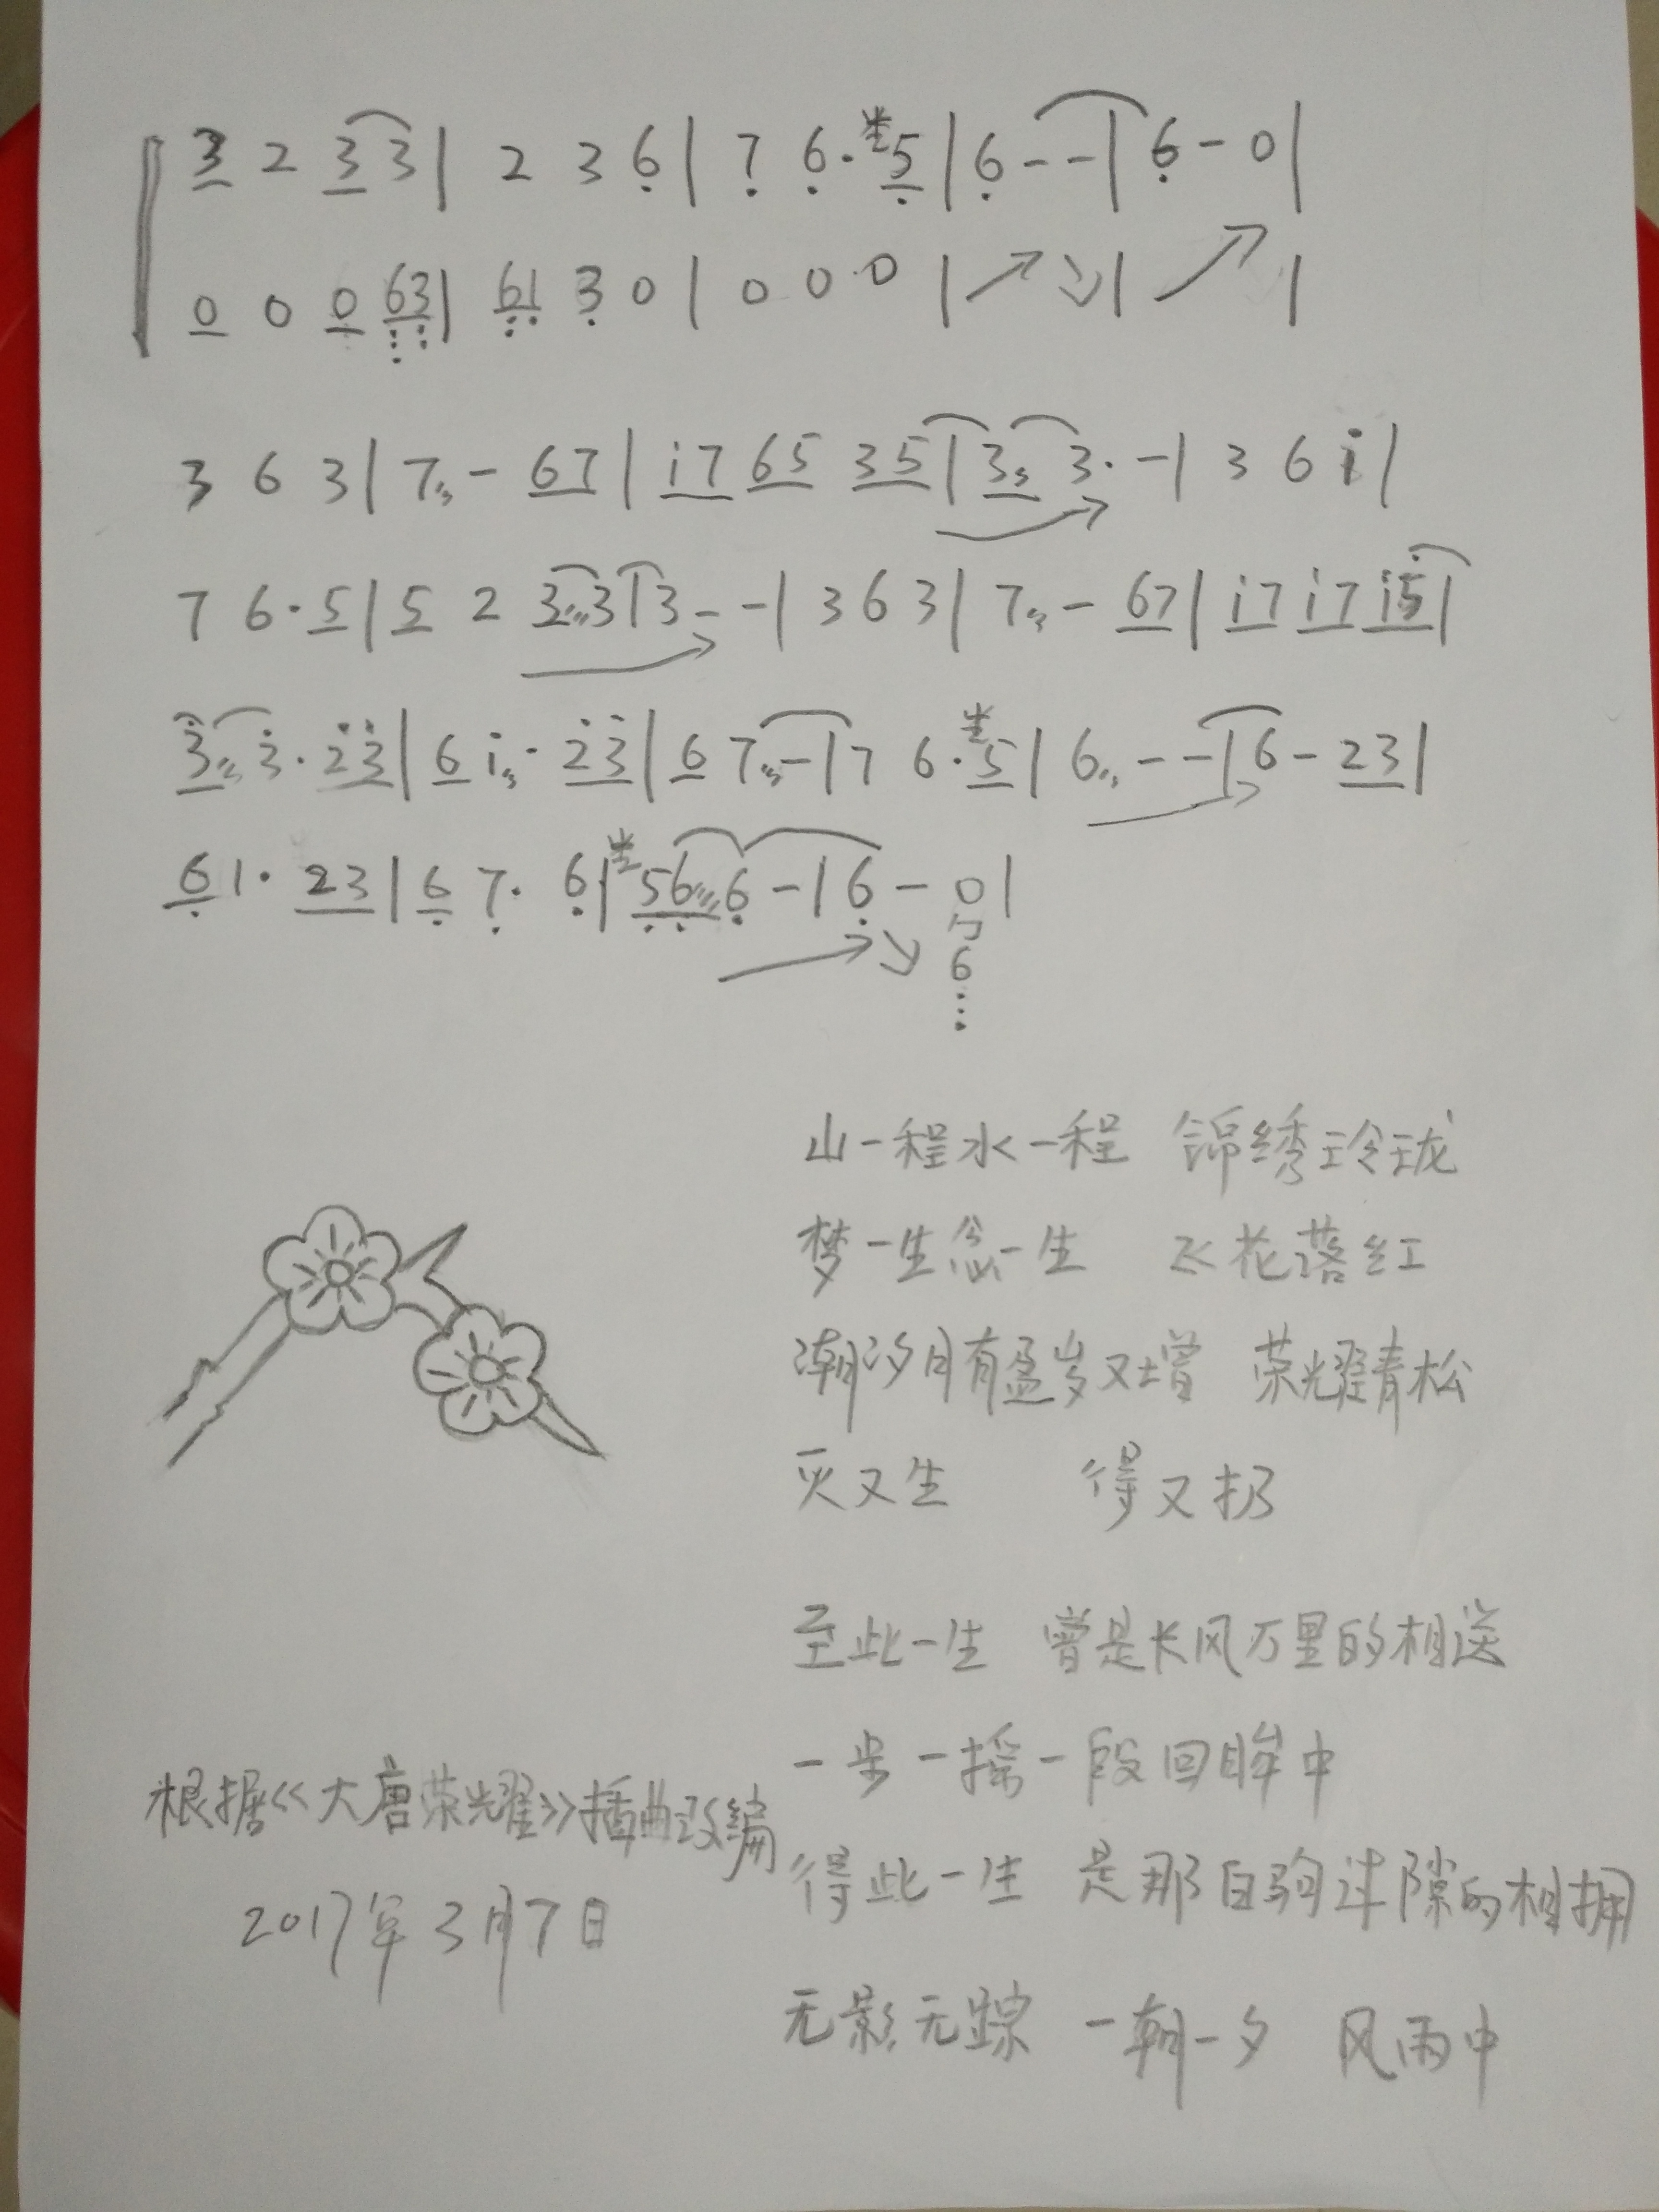 3 2 3 3 | 2 3 6 | 7 6 · 5 | 6 - - | 6 - 0 |
0 0 0 63 | 61 3 0 | 0 0 0 | ↗ ↘ | ↗ |
3 6 3 | 7 - 67 | i7 65 35 | 3 3 · - | 3 6 i |
7 6 · 5 | 5 2 3 3 | 3 - - | 3 6 3 | 7 - 67 | i7 i7 i5 |
3 3 · 23 | 6 i · 23 | 6 7 - | 7 6 · 5 | 6 - - | 6 - 23 |
6 1 · 23 | 6 7 · 6 | 56 6 - | 6 - 0 |
6
山一程水一程 锦绣玲珑
梦一生忿一生 飞花落红
潮汐月有盈岁又增 荣耀青松
灭又生 得又扔
至此一生 曾是长风万里的相送
一步一摇一段回眸中
得此一生 是那白驹过隙的相拥
无影无踪 一朝一夕 风雨中
根据《大唐荣耀》插曲改编
2017年3月7日